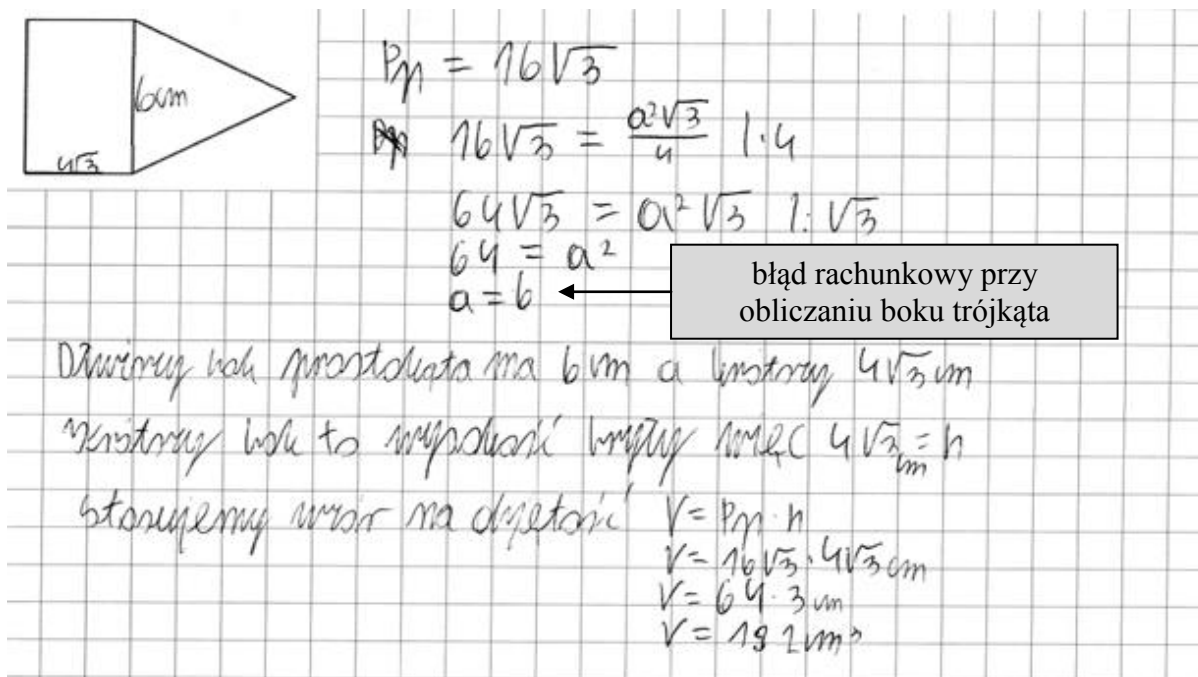 6cm
4√3
Pp = 16√3
16√3 = a²√3/4 |·4
64√3 = a²√3 |:√3
64 = a²
a = 6
błąd rachunkowy przy
obliczaniu boku trójkąta
Dłuższy bok prostokąta ma 6cm a krótszy 4√3 cm
krótszy bok to wysokość bryły więc 4√3 cm = h
stosujemy wzór na objętość V = Pp · h
V = 16√3 · 4√3 cm
V = 64 · 3 cm
V = 192 cm³